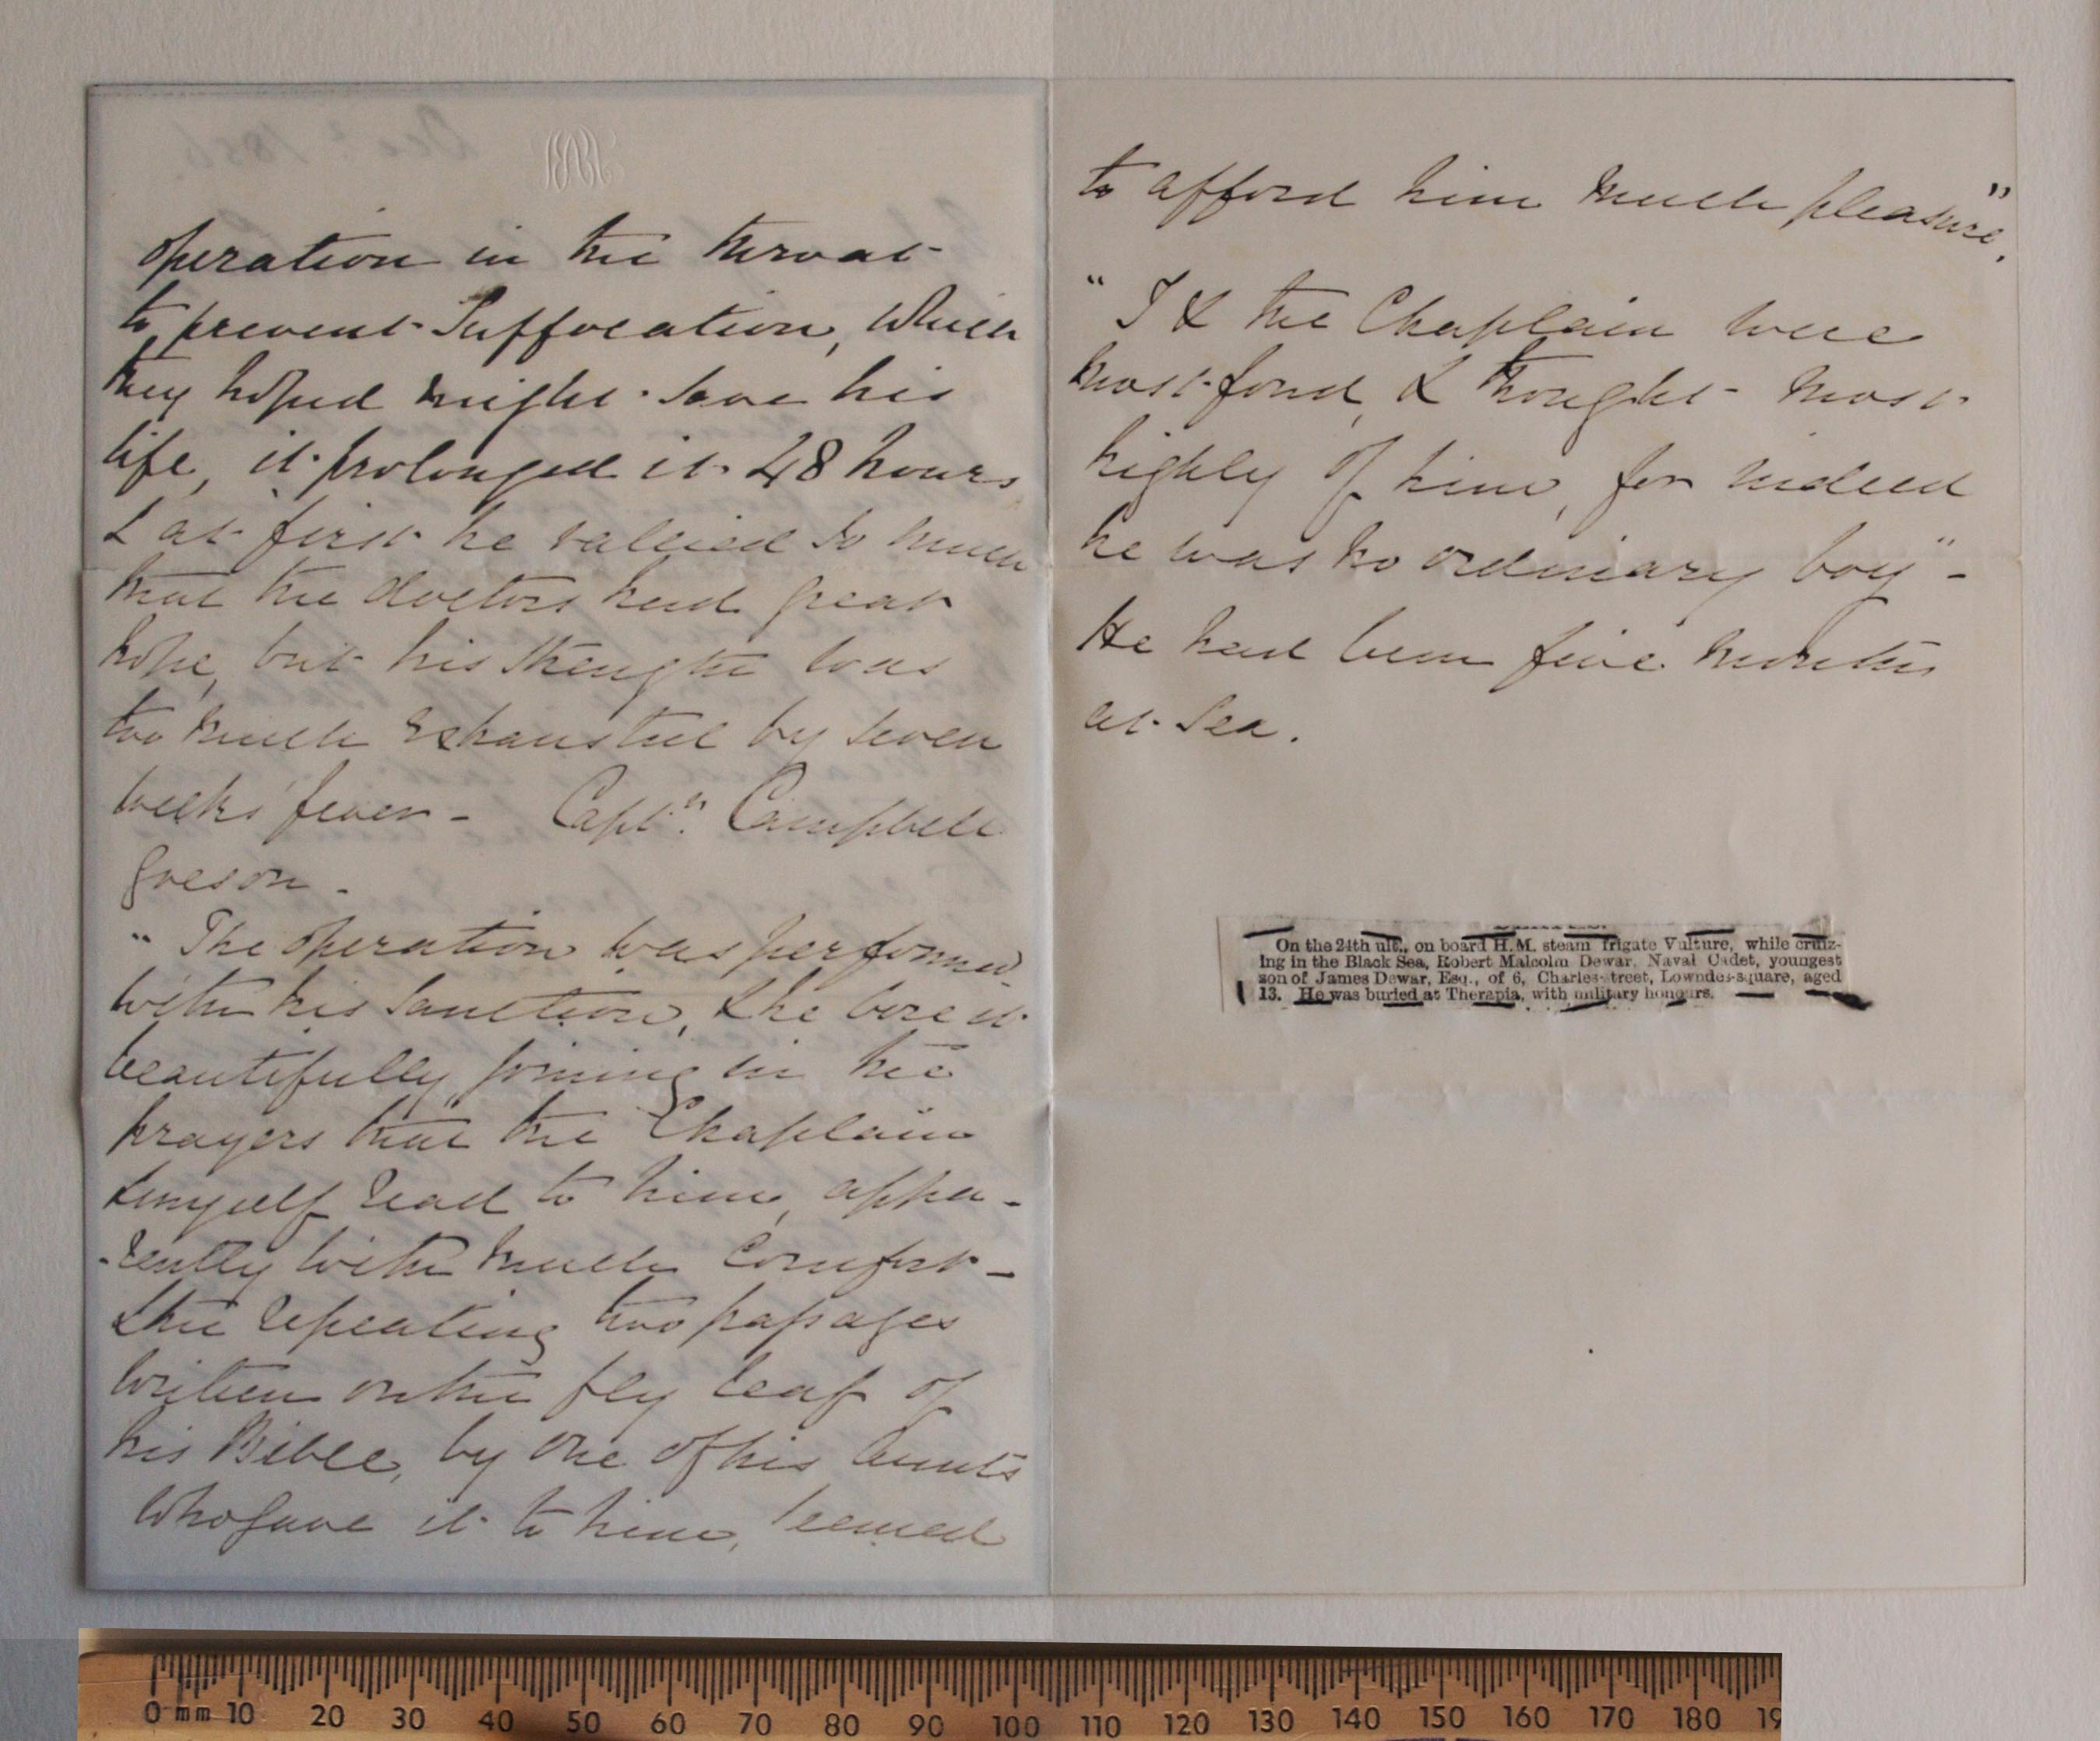 operation in the throat
to prevent Suffocation, which
they hoped might save his
life, it prolonged it 48 hours
& at first he rallied so much
that the doctors had great
hope, but his strength was
too much exhausted by seven
weeks' fever - Capt.n Campbell
goes on -
" The operation was performed
with his sanction, & he bore it
beautifully, joining in the
prayers that the Chaplain
& myself read to him, appa-
-rently with much comfort -
& the repeating two passages
written on the fly leaf of
his Bible, by one of his Aunts
who gave it to him, seemed
to afford him much pleasure."
" I & the Chaplain were
most fond, & thought most
highly of him, for indeed
he was no ordinary boy" -
He had been five months
at Sea.
On the 24th ult., on board H.M. steam frigate Vulture, while cruiz-
ing in the Black Sea, Robert Malcolm Dewar, Naval Cadet, youngest
son of James Dewar, Esq., of 6, Charles-street, Lowndes-square, aged
13. He was buried at Therapia, with military honours.
0 mm 10 20 30 40 50 60 70 80 90 100 110 120 130 140 150 160 170 180 19